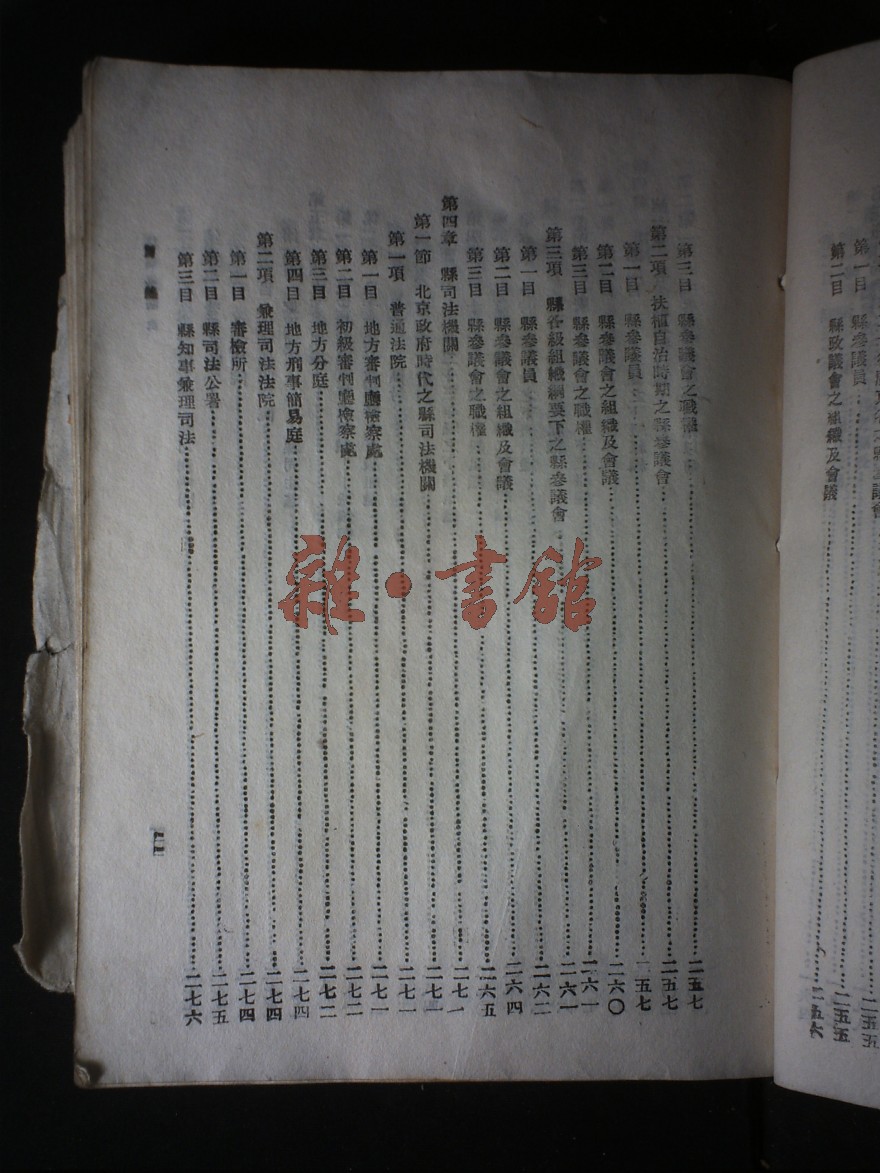 第一目　縣參議員⋯⋯二五五
第二目　縣政議會之組織及會議⋯⋯二五六
第三目　縣參議會之職權⋯⋯二五七
第二項　扶植自治時期之縣參議會⋯⋯二五七
第一目　縣參議員⋯⋯二五七
第二目　縣參議會之組織及會議⋯⋯二六〇
第三目　縣參議會之職權⋯⋯二六一
第三項　縣各級組織綱要下之縣參議會⋯⋯二六一
第一目　縣參議員⋯⋯二六二
第二目　縣參議會之組織及會議⋯⋯二六四
第三目　縣參議會之職權⋯⋯二六五
第四章　縣司法機關⋯⋯二七一
第一節　北京政府時代之縣司法機關⋯⋯二七一
第一項　普通法院⋯⋯二七一
第一目　地方審判廳檢察處⋯⋯二七一
第二目　初級審判廳檢察處⋯⋯二七二
第三目　地方分庭⋯⋯二七二
第四目　地方刑事簡易庭⋯⋯二七四
第二項　兼理司法法院⋯⋯二七四
第一目　審檢所⋯⋯二七四
第二目　縣司法公署⋯⋯二七五
第三目　縣知事兼理司法⋯⋯二七六
雜·書館